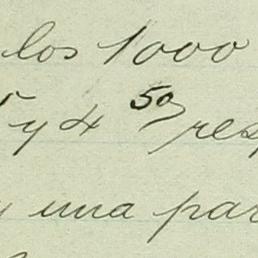 los 1000
y 4 50 res
y una par